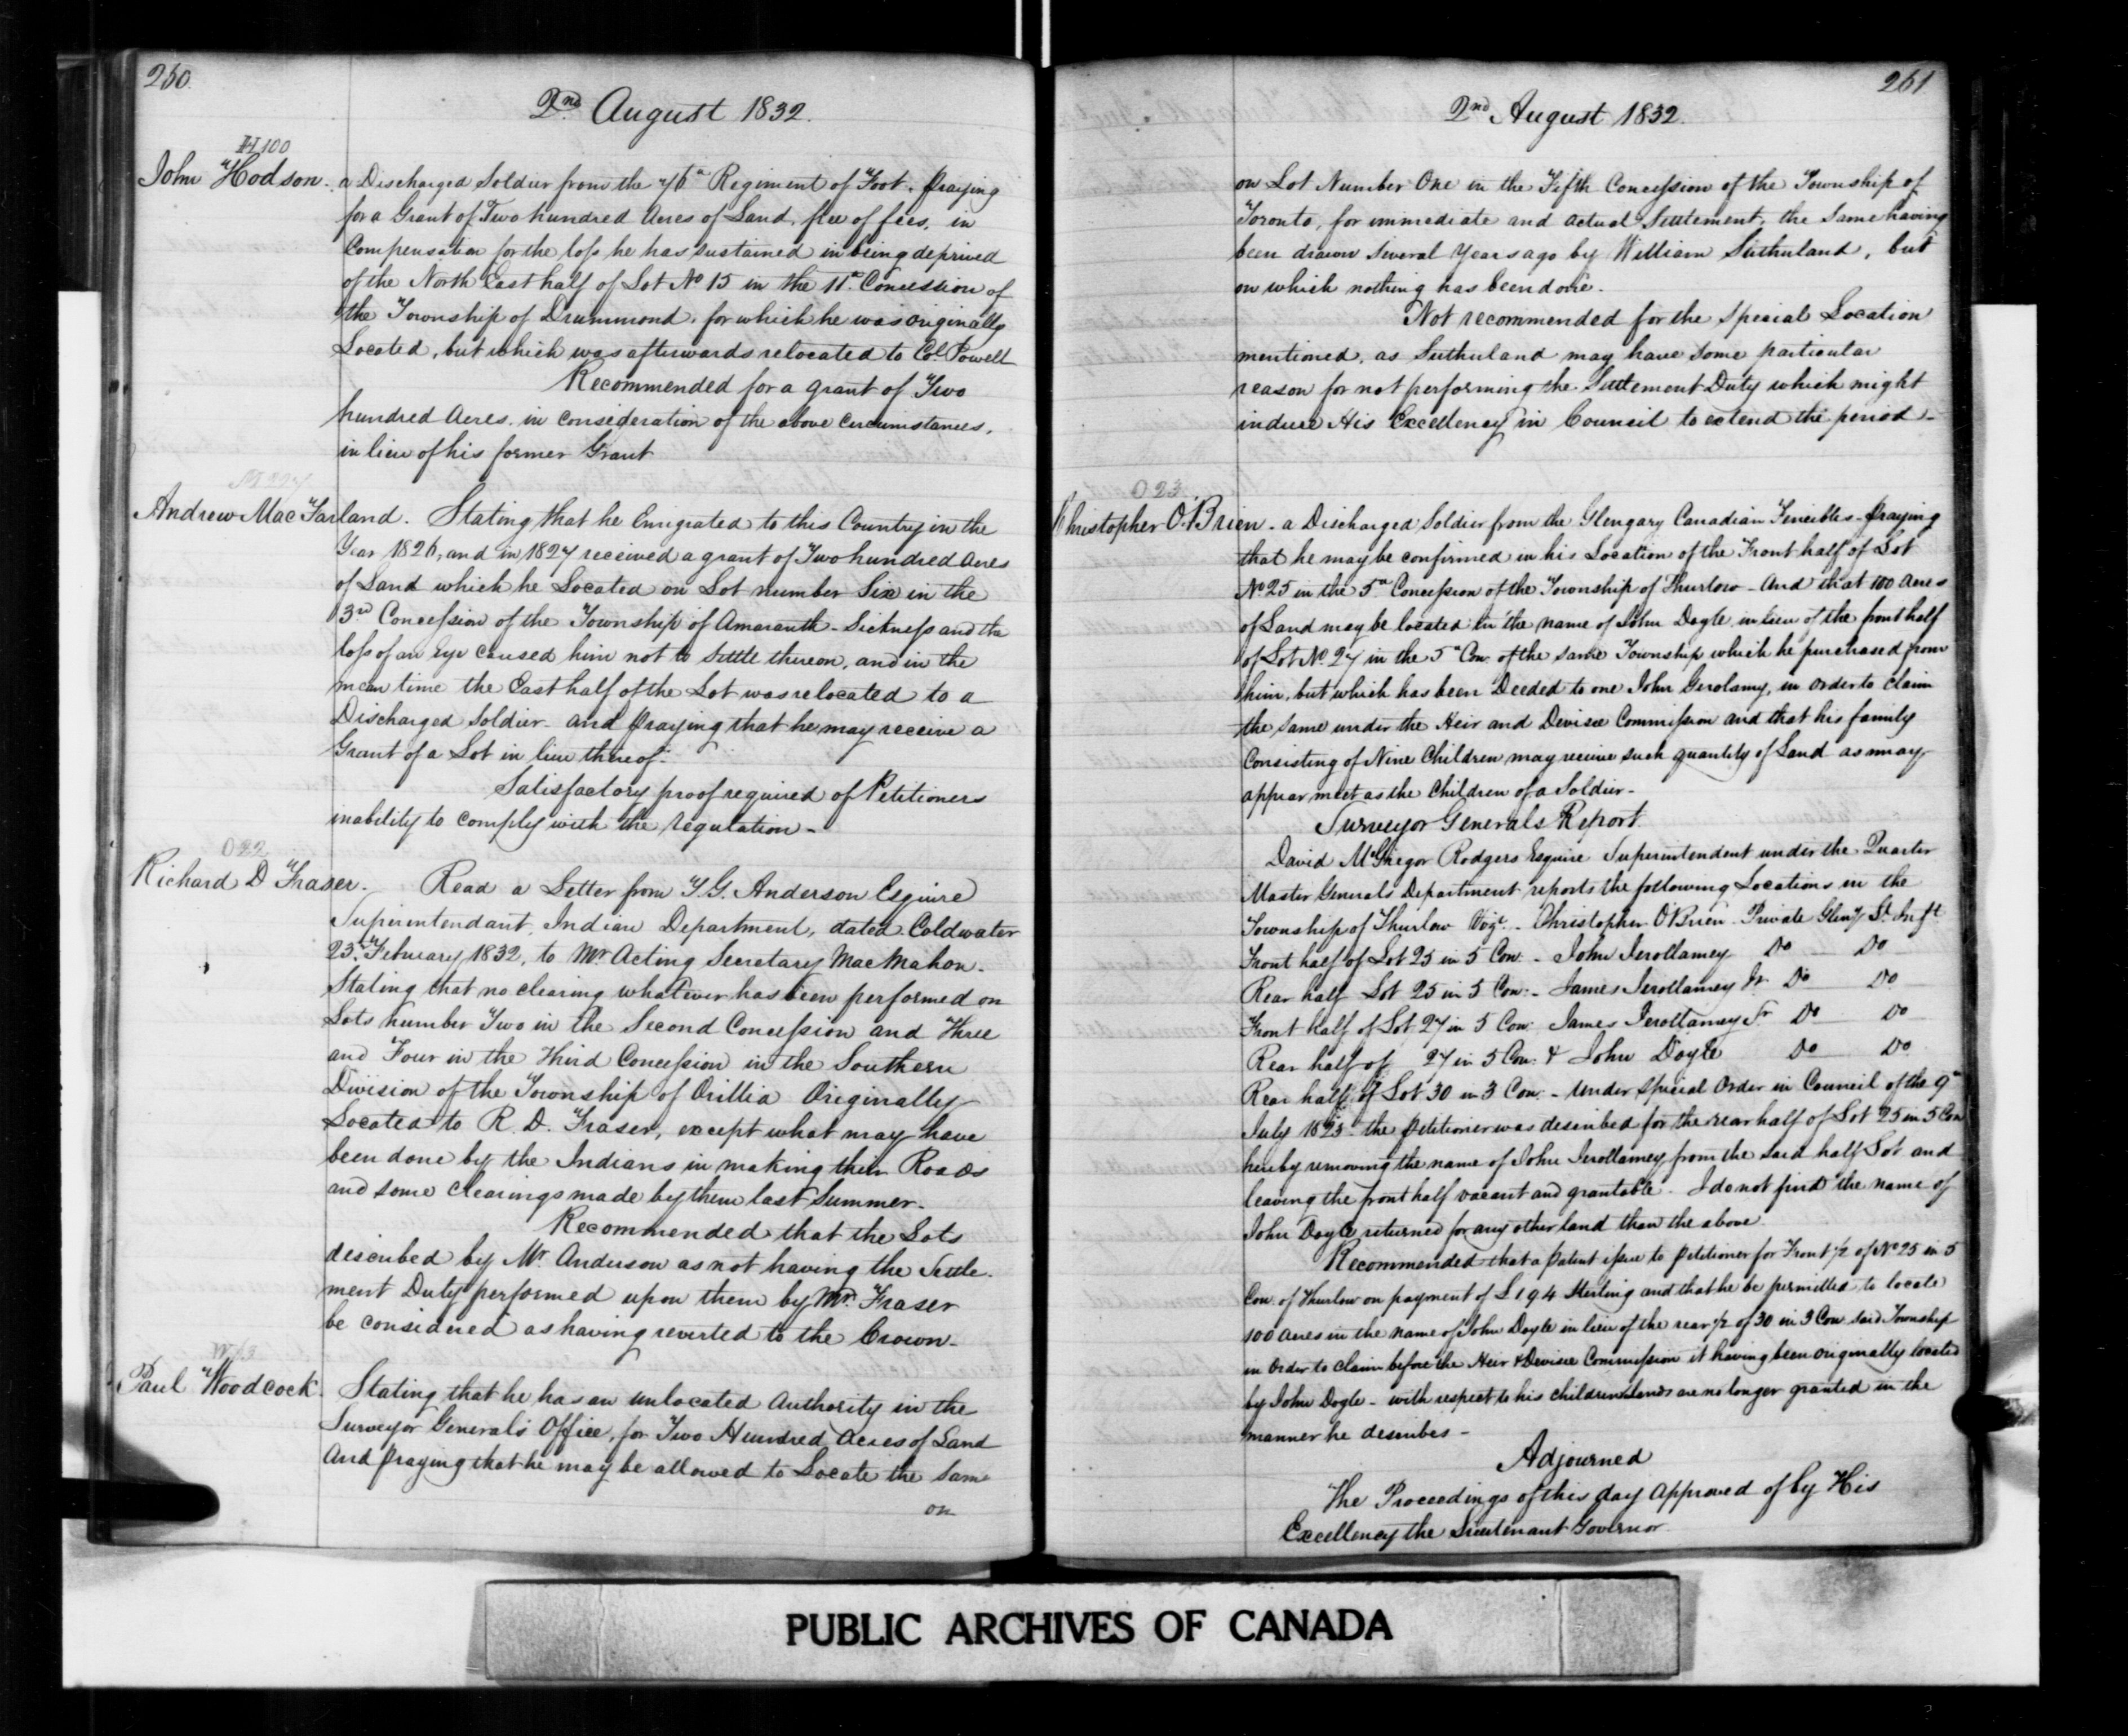 260.
2nd August 1832.
H 100
John Hodson. a Discharged Soldier from the 76th Regiment of Foot. Praying
for a Grant of Two hundred Acres of Land, free of fees, in
Compensation for the loss he has sustained in being deprived
of the North East half of Lot No 15 in the 11th Concession of
the Township of Drummond, for which he was Originally
Located, but which was afterwards relocated to Col Powell
Recommended for a grant of Two
hundred Acres, in consideration of the above circumstances,
in lieu of his former Grant
M 227
Andrew MacFarland. Stating that he Emigrated to this Country in the
Year 1826, and in 1827 received a grant of Two hundred Acres
of Land which he Located on Lot number Six in the
3rd Concession of the Township of Amaranth - Sickness and the
loss of an Eye caused him not to Settle thereon, and in the
mean time the East half of the Lot was relocated to a
Discharged Soldier - and Praying that he may receive a
Grant of a Lot in lieu thereof.
Satisfactory proof required of Petitioners
inability to comply with the regulation -
O 22
Richard D Fraser. Read a Letter from T. G. Anderson Esquire
Superintendant, Indian Department, dated Coldwater
23rd February 1832, to Mr Acting Secretary MacMahon.
Stating that no clearing whatever has been performed on
Lots number Two in the Second Concession and Three
and Four in the Third Concession in the Southern
Division of the Township of Orillia Originally
Located to R. D. Fraser, except what may have
been done by the Indians in making their Roads
and some clearings made by them last Summer.
Recommended that the Lots
described by Mr. Anderson as not having the Settle-
ment Duty performed upon them by Mr. Fraser
be considered as having reverted to the Crown -
W 13
Paul Woodcock. Stating that he has an unlocated Authority in the
Surveyor General's Office, for Two Hundred Acres of Land
And Praying that he may be allowed to Locate the Same
on
261
2nd August 1832.
on Lot Number One in the Fifth Concession of the Township of
Toronto, for immediate and actual Settlement, the Same having
been drawn Several Years ago by William Sutherland, but
on which nothing has been done.
Not recommended for the Special Location
mentioned, as Sutherland may have some particular
reason for not performing the Settlement Duty which might
induce His Excellency in Council to extend the period -
O 23
Christopher O'Brien - a Discharged Soldier from the Glengary Canadian Fencibles - Praying
that he may be confirmed in his Location of the Front half of Lot
No 25 in the 5th Concession of the Township of Thurlow - And that 100 Acres
of Land may be located in the name of John Doyle in lieu of the front half
of Lot No. 27 in the 5th Con. of the same Township which he purchased from
him, but which has been Deeded to one John Gerolamy, in order to claim
the same under the Heir and Devisee Commission and that his family
Consisting of Nine Children may receive such quantity of Land as may
appear meet as the Children of a Soldier -
Surveyor Generals Report.
David McGregor Rodgers Esquire Superintendent under the Quarter
Master Generals Department reports the following Locations in the
Township of Thurlow Vizt. - Christopher O'Brien Private Glengy Lt Infy
Front half of Lot 25 in 5 Con. - John Jerollamey Do Do
Rear half Lot 25 in 5 Con. - James Jerollamey Jr Do Do
Front half of Lot 27 in 5 Con. James Jerollamey Sr Do Do
Rear half of 27 in 5 Con. & John Doyle Do Do
Rear half of Lot 30 in 3 Con. - Under Special Order in Council of the 9th
July 1823. the Petitioner was described for the rear half of Lot 25 in 5 Con
hereby removing the name of John Jerollamey from the said half Lot and
leaving the front half vacant and grantable. I do not find the name of
John Doyle returned for any other land than the above.
Recommended that a Patent issue to Petitioner for Front 1/2 of No 25 in 5
Con. of Thurlow on payment of £1 9 4 Sterling and that he be permitted to locate
100 Acres in the name of John Doyle in lieu of the rear 1/2 of 30 in 3 Con said Township
in Order to claim before the Heir & Devisee Commission it having been originally located
by John Doyle - with respect to his children lands are no longer granted in the
manner he describes -
Adjourned
The Proceedings of this day Approved of by His
Excellency the Lieutenant Governor.
PUBLIC ARCHIVES OF CANADA